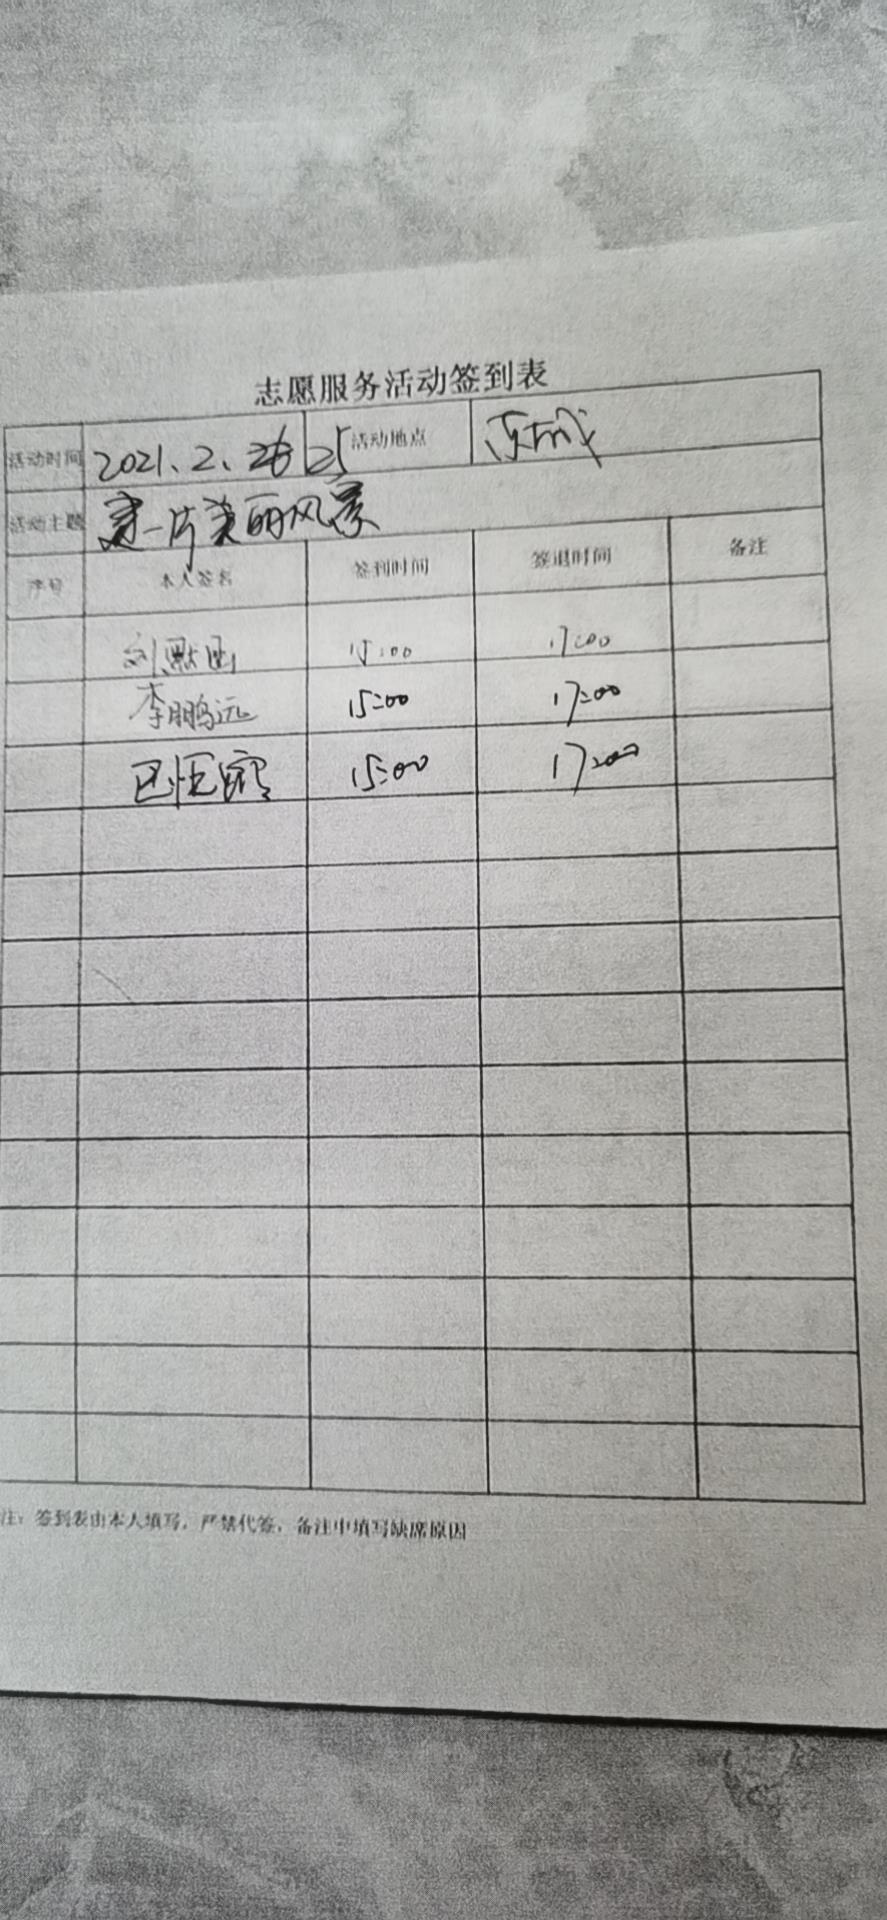 志愿服务活动签到表
活动时间 2021.2. 25 活动地点
活动主题 一片美丽风景
序号 本人签名 签到时间 签退时间 备注
刘 15:00 17:00
李鹏远 15:00 17:00
巴恒 15:00 17:00
注：签到表由本人填写，严禁代签，备注中填写缺席原因